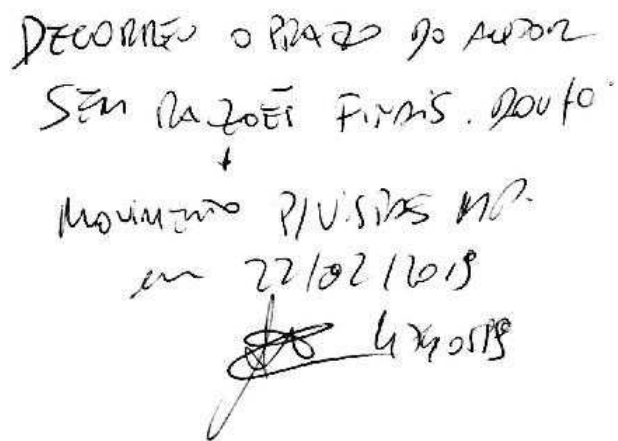 DECORREU O PRAZO DO AUTOR
SEM RAZÕES FINAIS. DOU FÉ.
MOVIMENTO P/ VISTAS MP.
em 22/02/2019